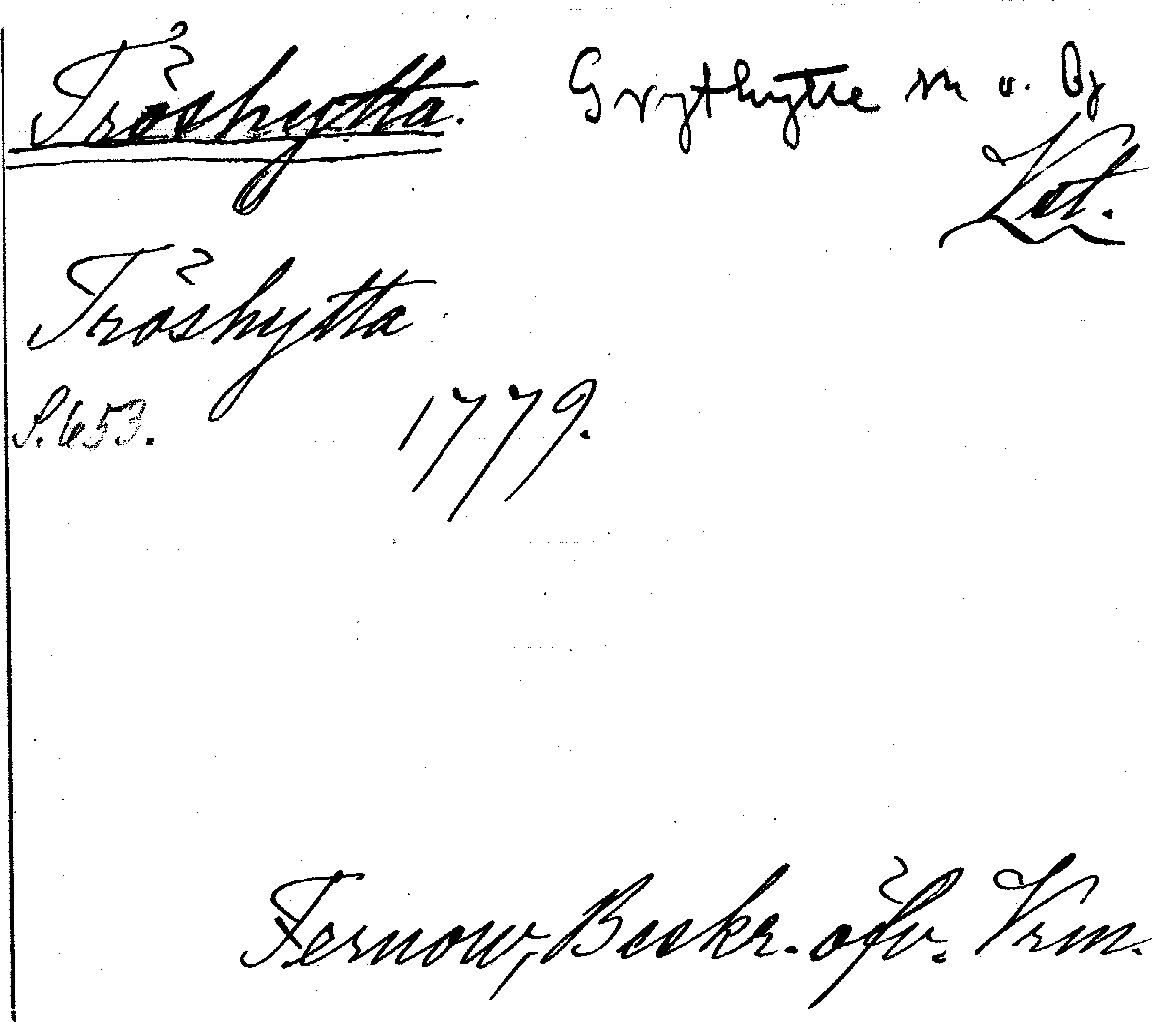 Tröshytta. Grythytte sn o. bg
Vrt.
Tröshytta
S. 653. 1779.
Fernow, Beskr. öfv. Vrm.